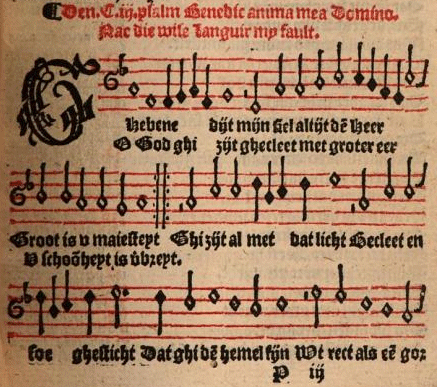 Den. C. iij. psalm Benedic anima mea Domino.
Nac die wise Languir my fault.
GHebene dijt mijn siel altijt dē Heer
O God ghi zijt ghecleet met groter eer
Groot is v maiesteyt Ghi zijt al met dat licht Gecleet en
V schoōheyt is v̄breyt.
soe ghesticht Dat ghi dē hemel sijn Wt rect als eē gor
P iij